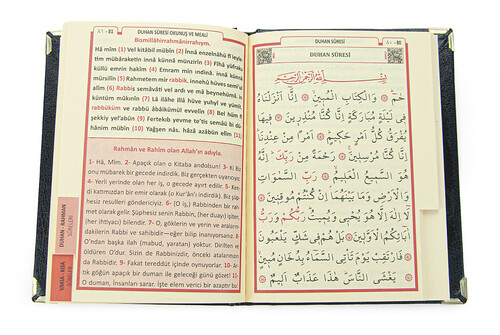 ٨١ - 81 DUHAN SÛRESİ OKUNUŞ VE MEALİ
Bismillâhirrahmânirrahîym.
Hâ mîm (1) Vel kitâbil mübîn (2) İnnâ enzelnâhü fî leyle
tim mübâraketin innâ künnâ münzirîn (3) Fîhâ yüfraku
küllü emrin hakîm (4) Emram min ındinâ, innâ künnâ
mürsilîn (5) Rahmetem mir rabbik, innehû hüves semî'ul
alîm (6) Rabbis semâvâti vel ardı ve mâ beynehümâ, in
küntüm mûkınîn (7) Lâ ilâhe illâ hüve yuhyî ve yümît,
rabbüküm ve rabbü âbâikümül evvelîn (8) Bel hüm fî
şekkiy yel'abûn (9) Fertekıb yevme te'tis semâü bi dü
hânim mübîn (10) Yağşen nâs, hâzâ azâbün elîm (11)
Rahmân ve Rahîm olan Allah'ın adıyla.
1- Hâ, Mîm. 2- Apaçık olan o Kitaba andolsun! 3- Ki Biz
onu mübarek bir gecede indirdik. Biz gerçekten uyarıyo
4- Yerli yerinde olan her iş, o gecede ayırt edilir. 5- Ken
di katımızdan bir emir olarak (o Kur'ân'ı indirdik). Biz, şüp
hesiz resulleri göndericiyiz. 6- (O iş,) Rabbinden bir rah
met olarak gelir. Şüphesiz senin Rabbin, (her duayı) işiten,
(her ihtiyacı) bilendir. 7- O, göklerin ve yerin ve arasın
dakilerin Rabbi ve sahibidir—eğer bilip inanıyorsanız. 8-
O'ndan başka ilah (mabud, yaratan) yoktur. Dirilten ve
öldüren O'dur. Sizin de Rabbinizdir, önceki atalarınızın
da Rabbidir. 9- Fakat tereddüt içinde oynuyorlar. 10- Ar
tık göğün apaçık bir duman ile geleceği günü gözet! 11-
O duman, insanları sarar. İşte elem verici bir azaptır bu.
DUHAN - RAHMAN
SÛRELERİ
DUHAN SÛRESİ ٨٠ - 80
DUHAN SÛRESİ
بِسْمِ اللّٰهِ الرَّحْمٰنِ الرَّحِيمِ
حٰمٓ ۞ وَالْكِتَابِ الْمُبِينِ ۞ اِنَّٓا اَنْزَلْنَاهُ
فِى لَيْلَةٍ مُبَارَكَةٍ اِنَّا كُنَّا مُنْذِرِينَ ۞ فِيهَا
يُفْرَقُ كُلُّ اَمْرٍ حَكِيمٍ ۞ اَمْرًا مِنْ عِنْدِنَا
اِنَّا كُنَّا مُرْسِلِينَ ۞ رَحْمَةً مِنْ رَبِّكَ اِنَّهُ
هُوَ السَّمِيعُ الْعَلِيمُ ۞ رَبِّ السَّمٰوَاتِ
وَالْاَرْضِ وَمَا بَيْنَهُمَا اِنْ كُنْتُمْ مُوقِنِينَ ۞
لَٓا اِلٰهَ اِلَّا هُوَ يُحْيِى وَيُمِيتُ رَبُّكُمْ وَرَبُّ
اٰبَٓائِكُمُ الْاَوَّلِينَ ۞ بَلْ هُمْ فِى شَكٍّ يَلْعَبُونَ
۞ فَارْتَقِبْ يَوْمَ تَاْتِى السَّمَٓاءُ بِدُخَانٍ مُبِينٍ
۞ يَغْشَى النَّاسَ هٰذَا عَذَابٌ اَلِيمٌ ۞